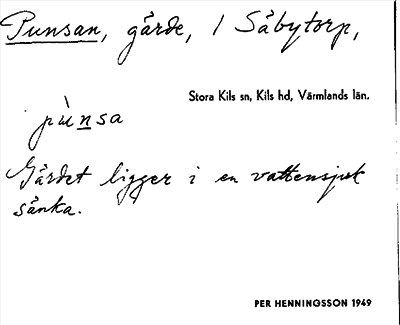 Punsan, gärde, / Såbytorp,
Stora Kils sn, Kils hd, Värmlands län.
pùnsa
Gärdet ligger i en vattensjuk
sänka.
PER HENNINGSSON 1949